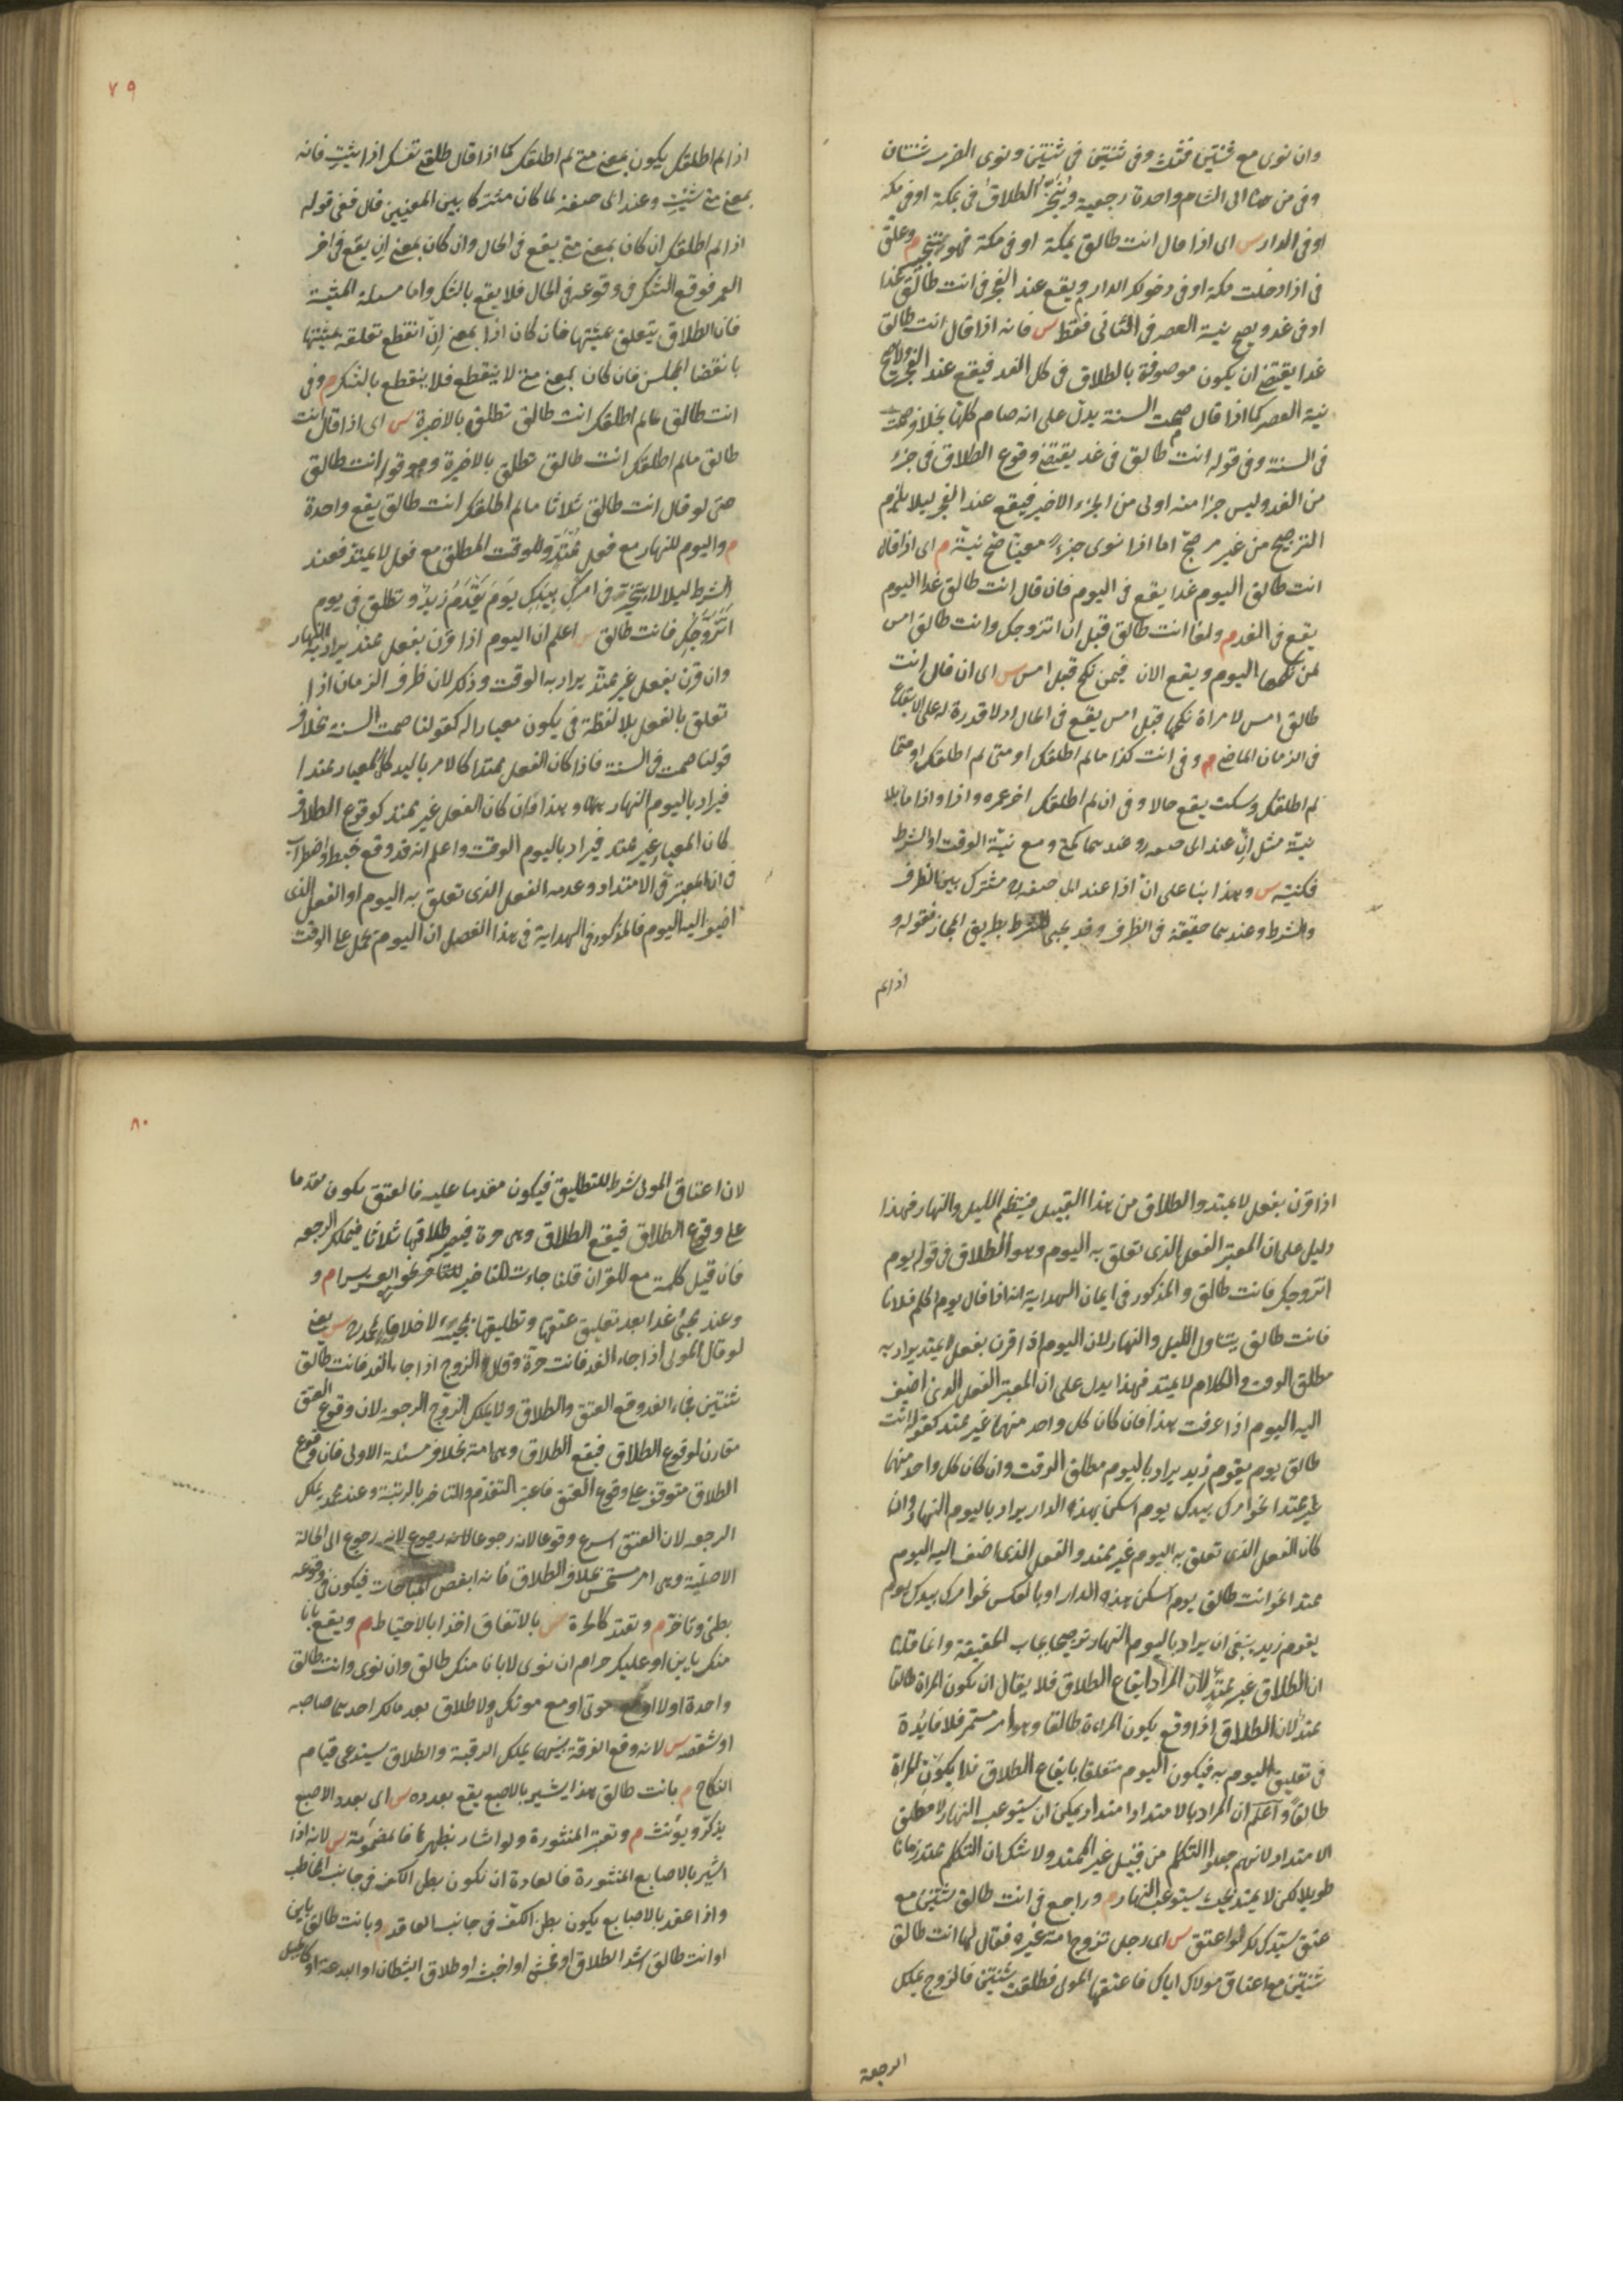 وان نوى مع ثنتين فثلث وفى ثنتين فى ثنتين ونوى الضرب ثنتان
وفى من هنا الى الشام واحدة رجعية ويُنَجَّزُ الطلاقُ فى بمكة او فى مكة
او فى الدار س اى اذا قال انت طالق بمكة او فى مكة فهو تنجيز م وعلق
فى اذا دخلت مكة او فى دخولك الدار ويقع عند الفجر فى انت طالق غدا
او فى غد ويصح نية العصر فى الثانى فقط س فانه اذا قال انت طالق
غدا يقتضى ان يكون موصوفة بالطلاق فى كل الغد فيقع عند الفجر ولا يصح
نية العصر كما اذا قال صمت السنة يدل على انه صام كلها بخلاف صمت
فى السنة وفى قوله انت طالق فى غد يقتضى وقوع الطلاق فى جزء
من الغد وليس جزء منه اولى من الجزء الاخير فيقع عند الفجر ليلا يلزم
الترجيح من غير مرجح اما اذا نوى جزءا معينا صح نيته م اى اذا قال
انت طالق اليوم غدا يقع فى اليوم فان قال انت طالق غدا اليوم
يقع فى الغد م ولغا انت طالق قبل ان اتزوجك وانت طالق امس
لمن نكحها اليوم ويقع الان فيمن نكح قبل امس س اى ان قال انت
طالق امس لامراة نكحها قبل امس يقع فى الحال اذ لا قدرة له على الايقاع
فى الزمان الماضى م وفى انت كذا مالم اطلقك او متى لم اطلقك او متى ما
لم اطلقك وسكت يقع حالا وفى ان لم اطلقك اخر عمره واذا واذا ما بلا
نية مثل ان عند ابى حنيفه وعندهما كمتى ومع نية الوقت او الشرط
فكنيته س وهذا بناء على ان اذا عند ابى حنيفه مشترك بين الظرف
والشرط وعندهما حقيقة فى الظرف وقد يجىء للشرط بطريق المجاز فقوله و
اذا لم
٧٩
اذا لم اطلقك يكون بمعنى متى لم اطلقك كما اذا قال طلقى نفسك اذا شئت فانه
بمعنى متى شئت وعند ابى حنيفة لما كان مشتركا بين المعنيين قال ففى قوله
اذا لم اطلقك ان كان بمعنى متى يقع فى الحال وان كان بمعنى ان يقع فى اخر
العمر فوقع الشك فى وقوعه فى الحال فلا يقع بالشك واما مسئلة المشية
فان الطلاق يتعلق بمشيتها فان كان اذا بمعنى ان انقطع تعلقه بمشيتها
بانقضا المجلس فان كان بمعنى متى لا ينقطع فلا ينقطع بالشك م وفى
انت طالق مالم اطلقك انت طالق تطلق بالاخيرة س اى اذا قال انت
طالق مالم اطلقك انت طالق تطلق بالاخيرة وهو قوله انت طالق
حتى لو قال انت طالق ثلاثا مالم اطلقك انت طالق يقع واحدة
م واليوم للنهار مع فعل مُمْتَدٍّ وللوقت المطلق مع فعل لا يمتد فعند
الشرط ليلا لا يتخير فى امرك بيدك يوم يَقْدُمُ زيد وتطلق فى يوم
اتزوجك فانت طالق س اعلم ان اليوم اذا قرن بفعل ممتد يراد به النهار
وان قرن بفعل غير ممتد يراد به الوقت وذلك لان ظرف الزمان اذا
تعلق بالفعل بلا لفظة فى يكون معيارا له كقولنا صمت السنة بخلاف
قولنا صمت فى السنة فاذا كان الفعل ممتدا كالامر باليد كان المعيار ممتدا
فيراد باليوم النهار وهذا فان كان الفعل غير ممتد كوقوع الطلاق
كان المعيار غير ممتد فيراد باليوم الوقت واعلم انه قد وقع خبط واضطراب
فى ان المعتبر فى الامتداد وعدمه الفعل الذى تعلق به اليوم او الفعل الذى
اضيف اليه اليوم فالمذكور فى الهداية فى هذا الفصل ان اليوم يحمل على الوقت
اذا قرن بفعل لا يمتد والطلاق من هذا القبيل فينتظم الليل والنهار فهذا
دليل على ان المعتبر الفعل الذى تعلق به اليوم وهو الطلاق فى قوله يوم
اتزوجك فانت طالق والمذكور فى ايمان الهداية انه اذا قال يوم اكلم فلانا
فانت طالق يتناول الليل والنهار لان اليوم اذا قرن بفعل لا يمتد يراد به
مطلق الوقت والكلام لا يمتد فهذا يدل على ان المعتبر الفعل الذى اضيف
اليه اليوم اذا عرفت هذا فان كان كل واحد منهما غير ممتد كقوله انت
طالق يوم يقوم زيد يراد باليوم مطلق الوقت وان كان كل واحد منهما
ممتدا نحو امرك بيدك يوم اسكن هذه الدار يراد باليوم النهار وان
كان الفعل الذى تعلق به اليوم غير ممتد والفعل الذى اضيف اليه اليوم
ممتدا نحو انت طالق يوم اسكن هذه الدار او بالعكس نحو امرك بيدك يوم
يقوم زيد ينبغى ان يراد باليوم النهار ترجيحا بجانب الحقيقة وانما قلنا
ان الطلاق غير ممتد لان المراد ايقاع الطلاق فلا يقال ان كون المراة طالقا
ممتد لان الطلاق اذا وقع يكون المراءة طالقا وهو امر مستمر فلا فايدة
فى تعليق اليوم به فيكون اليوم متعلقا بايقاع الطلاق فلا يكون المراة
طالقا واعلم ان المراد بالامتداد امتداد يمكن ان يستوعب النهار لا مطلق
الامتداد لانهم جعلوا التكلم من قبيل غير الممتد ولا شك ان التكلم ممتد زمانا
طويلا لكن لا يمتد بحيث يستوعب النهار م وراجع فى انت طالق ثنتين مع
عتق سيدك لك لو اعتق س اى رجل تزوج امة غيره فقال لها انت طالق
ثنتين مع اعتاق مولاك اياك فاعتقها المولى فطلقت ثنتين فالزوج يملك
الرجعة
٨٠
لان اعتاق المولى شرط للتطليق فيكون مقدما عليه فالعتق يكون مقدما
على وقوع الطلاق فيقع الطلاق وهى حرة فيصير طلاقها ثلاثا فيملك الرجعه
فان قيل كلمة مع للقران قلنا جاءت للتاخير نحو ان مع العسر يسرا م و
وعند مجئ غدا بعد تعليق عتقها وتطليقها بمجيئه لا خلافا لمحمد س يعنى
لو قال المولى اذا جاء الغد فانت حرة وقال الزوج اذا جاء الغد فانت طالق
ثنتين فجاء الغد وقع العتق والطلاق ولا يملك الزوج الرجعه لان وقوع العتق
مقارن لوقوع الطلاق فيقع الطلاق وهى امة بخلاف مسئلة الاولى فان وقوع
الطلاق متوقف على وقوع العتق فاعتبر التقدم والتاخر بالرتبة وعند محمد يملك
الرجعه لان العتق اسرع وقوعا لانه رجوع الى الحالة
الاصلية وهى امر مستحسن بخلاف الطلاق فانه ابغض المباحات فيكون فى وقوعه
بطئ وتاخر م وتعتد كالحرة س بالاتفاق اخذا بالاحتياط م ويقع بانا
منك باين او عليك حرام ان نوى لا بانا منك طالق وان نوى وانت طالق
واحدة اولا او مع موتى او مع موتك ولا طلاق بعد مالك احدهما صاحبه
او شقصه س لانه وقع الفرقة بينهما بملك الرقبة والطلاق يستدعى قيام
النكاح م بانت طالق هذا يشير بالاصبع يقع بعدده س اى بعدد الاصبع
يذكر ويؤنث م وتعتبر المنشورة ولو اشار بظهرها فالمضمومة س لانه اذا
اشير بالاصابع المنشورة فالعادة ان تكون بطن الكف فى جانب المخاطب
واذا عقد بالاصابع يكون بطن الكف فى جانب العاقد م وبانت طالق باين
او انت طالق اشد الطلاق او افحش او اخبث او طلاق الشيطان او البدعة او كالجبل